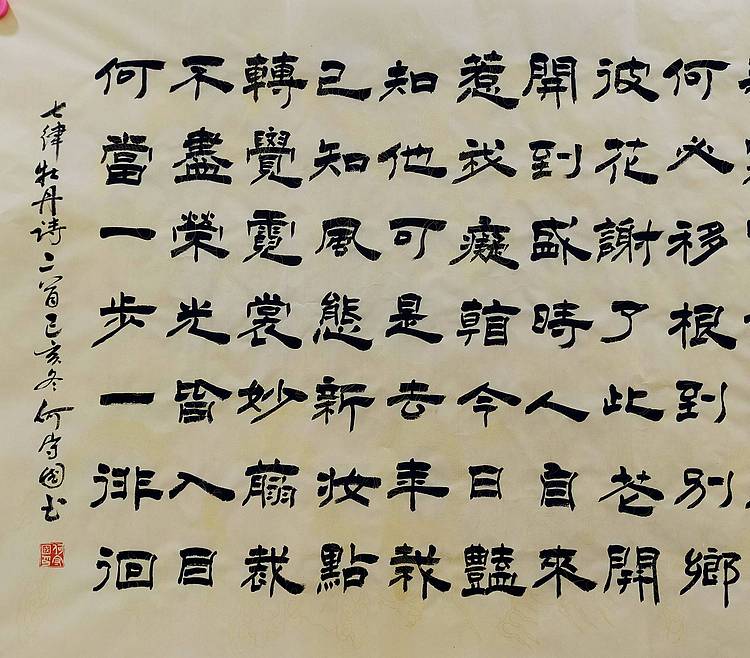 何必移根到別鄉
彼花謝了此花開
開到盛時人自來
惹我癡今日豔
知他可是去年栽
已知風態新妝點
轉覺霓裳妙翦裁
不盡榮光皆入目
何當一步一徘徊
七律牡丹詩二首己亥冬何守國书